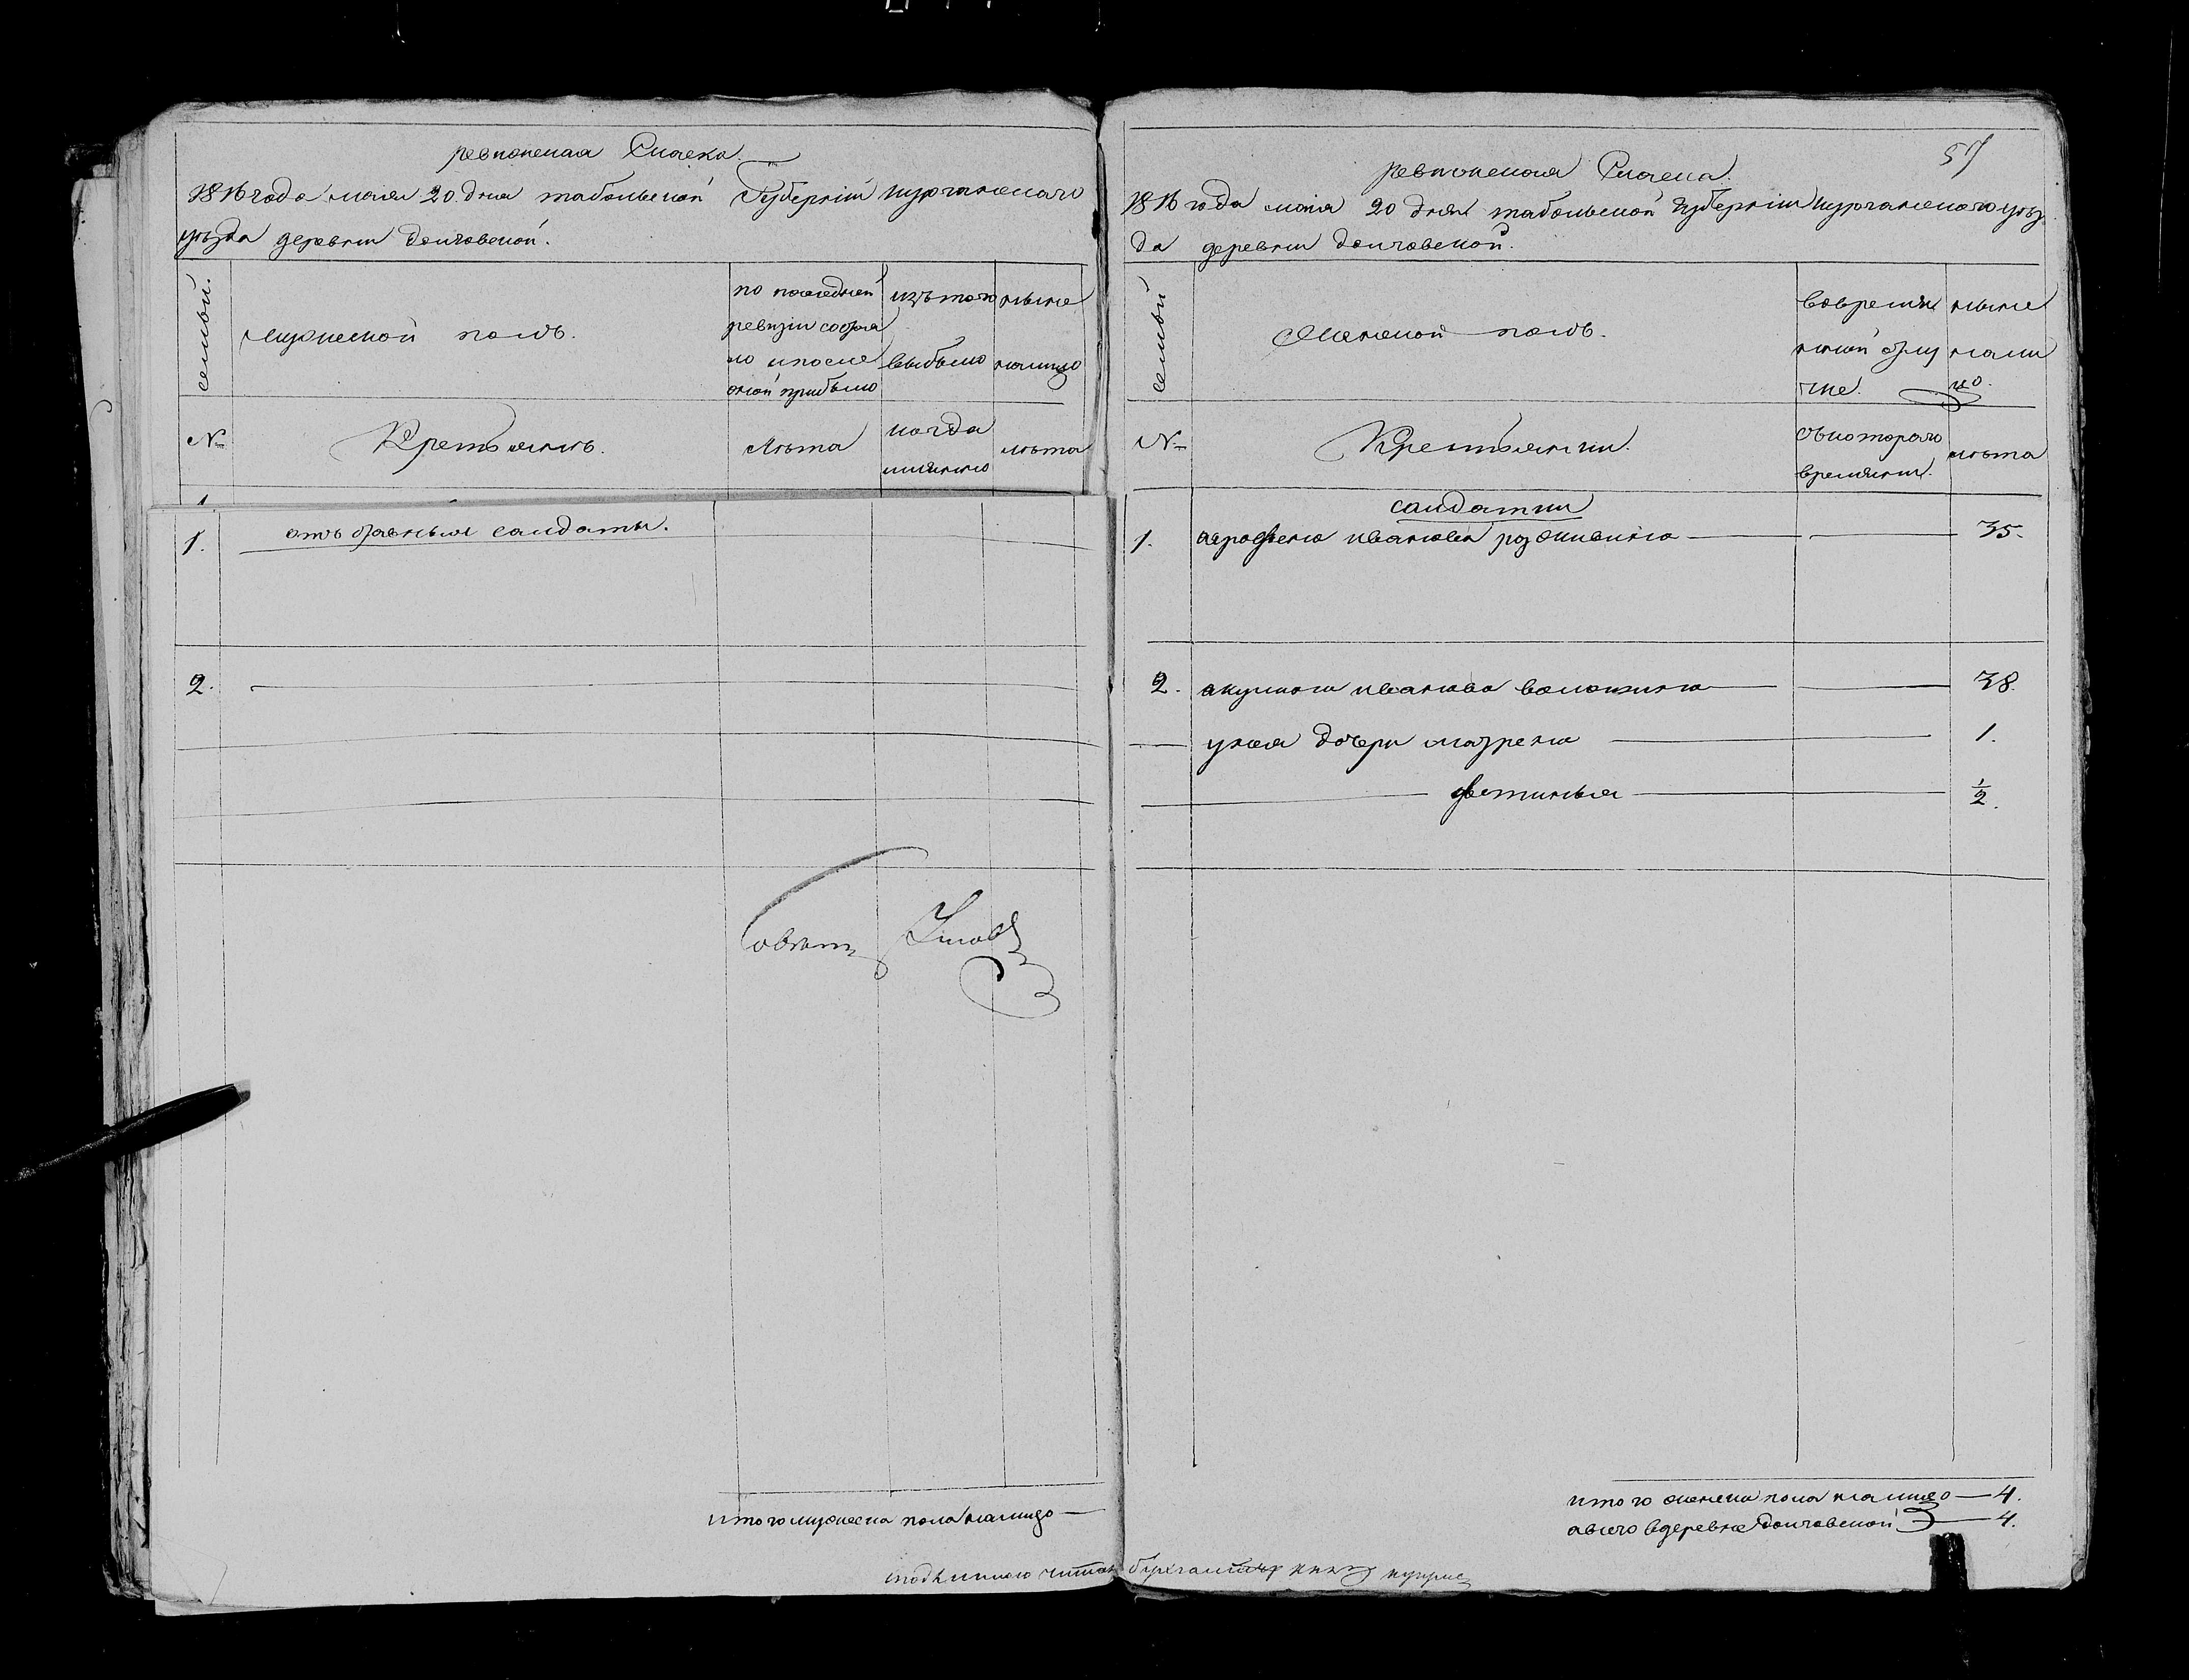 ревизская Сказка
1816 года маия 20 дня табольской Губернии курганскаго
уезда деревни долговской.
семьи.
мужеской полъ.
по последней
ревизіи состоя
ло и после
оной прибыло
изъ того
выбыло
ныне
налицо
№
Крестьянъ.
лѣта
когда
имянно
лѣта
1
1. отъ бранныя салдаты.
2.
Итого мужеска пола налицо
57
ревизская Сказка.
1816 года маия 20 дня табольской губерніи курганскаго уез
да деревни долговской.
семьи
Женской полъ.
вовремян
ной отлу
чке.
ныне
нали
цо.
№
Крестьянки.
съкотораго
времяни.
лѣта
салдатки
1. аграфена иванова 35.
2. акулина иванова 38.
унея дочери матрена 1.
фетинья 1/2.
итого женска пола налицо 4.
авсего вдеревне долговской 4.